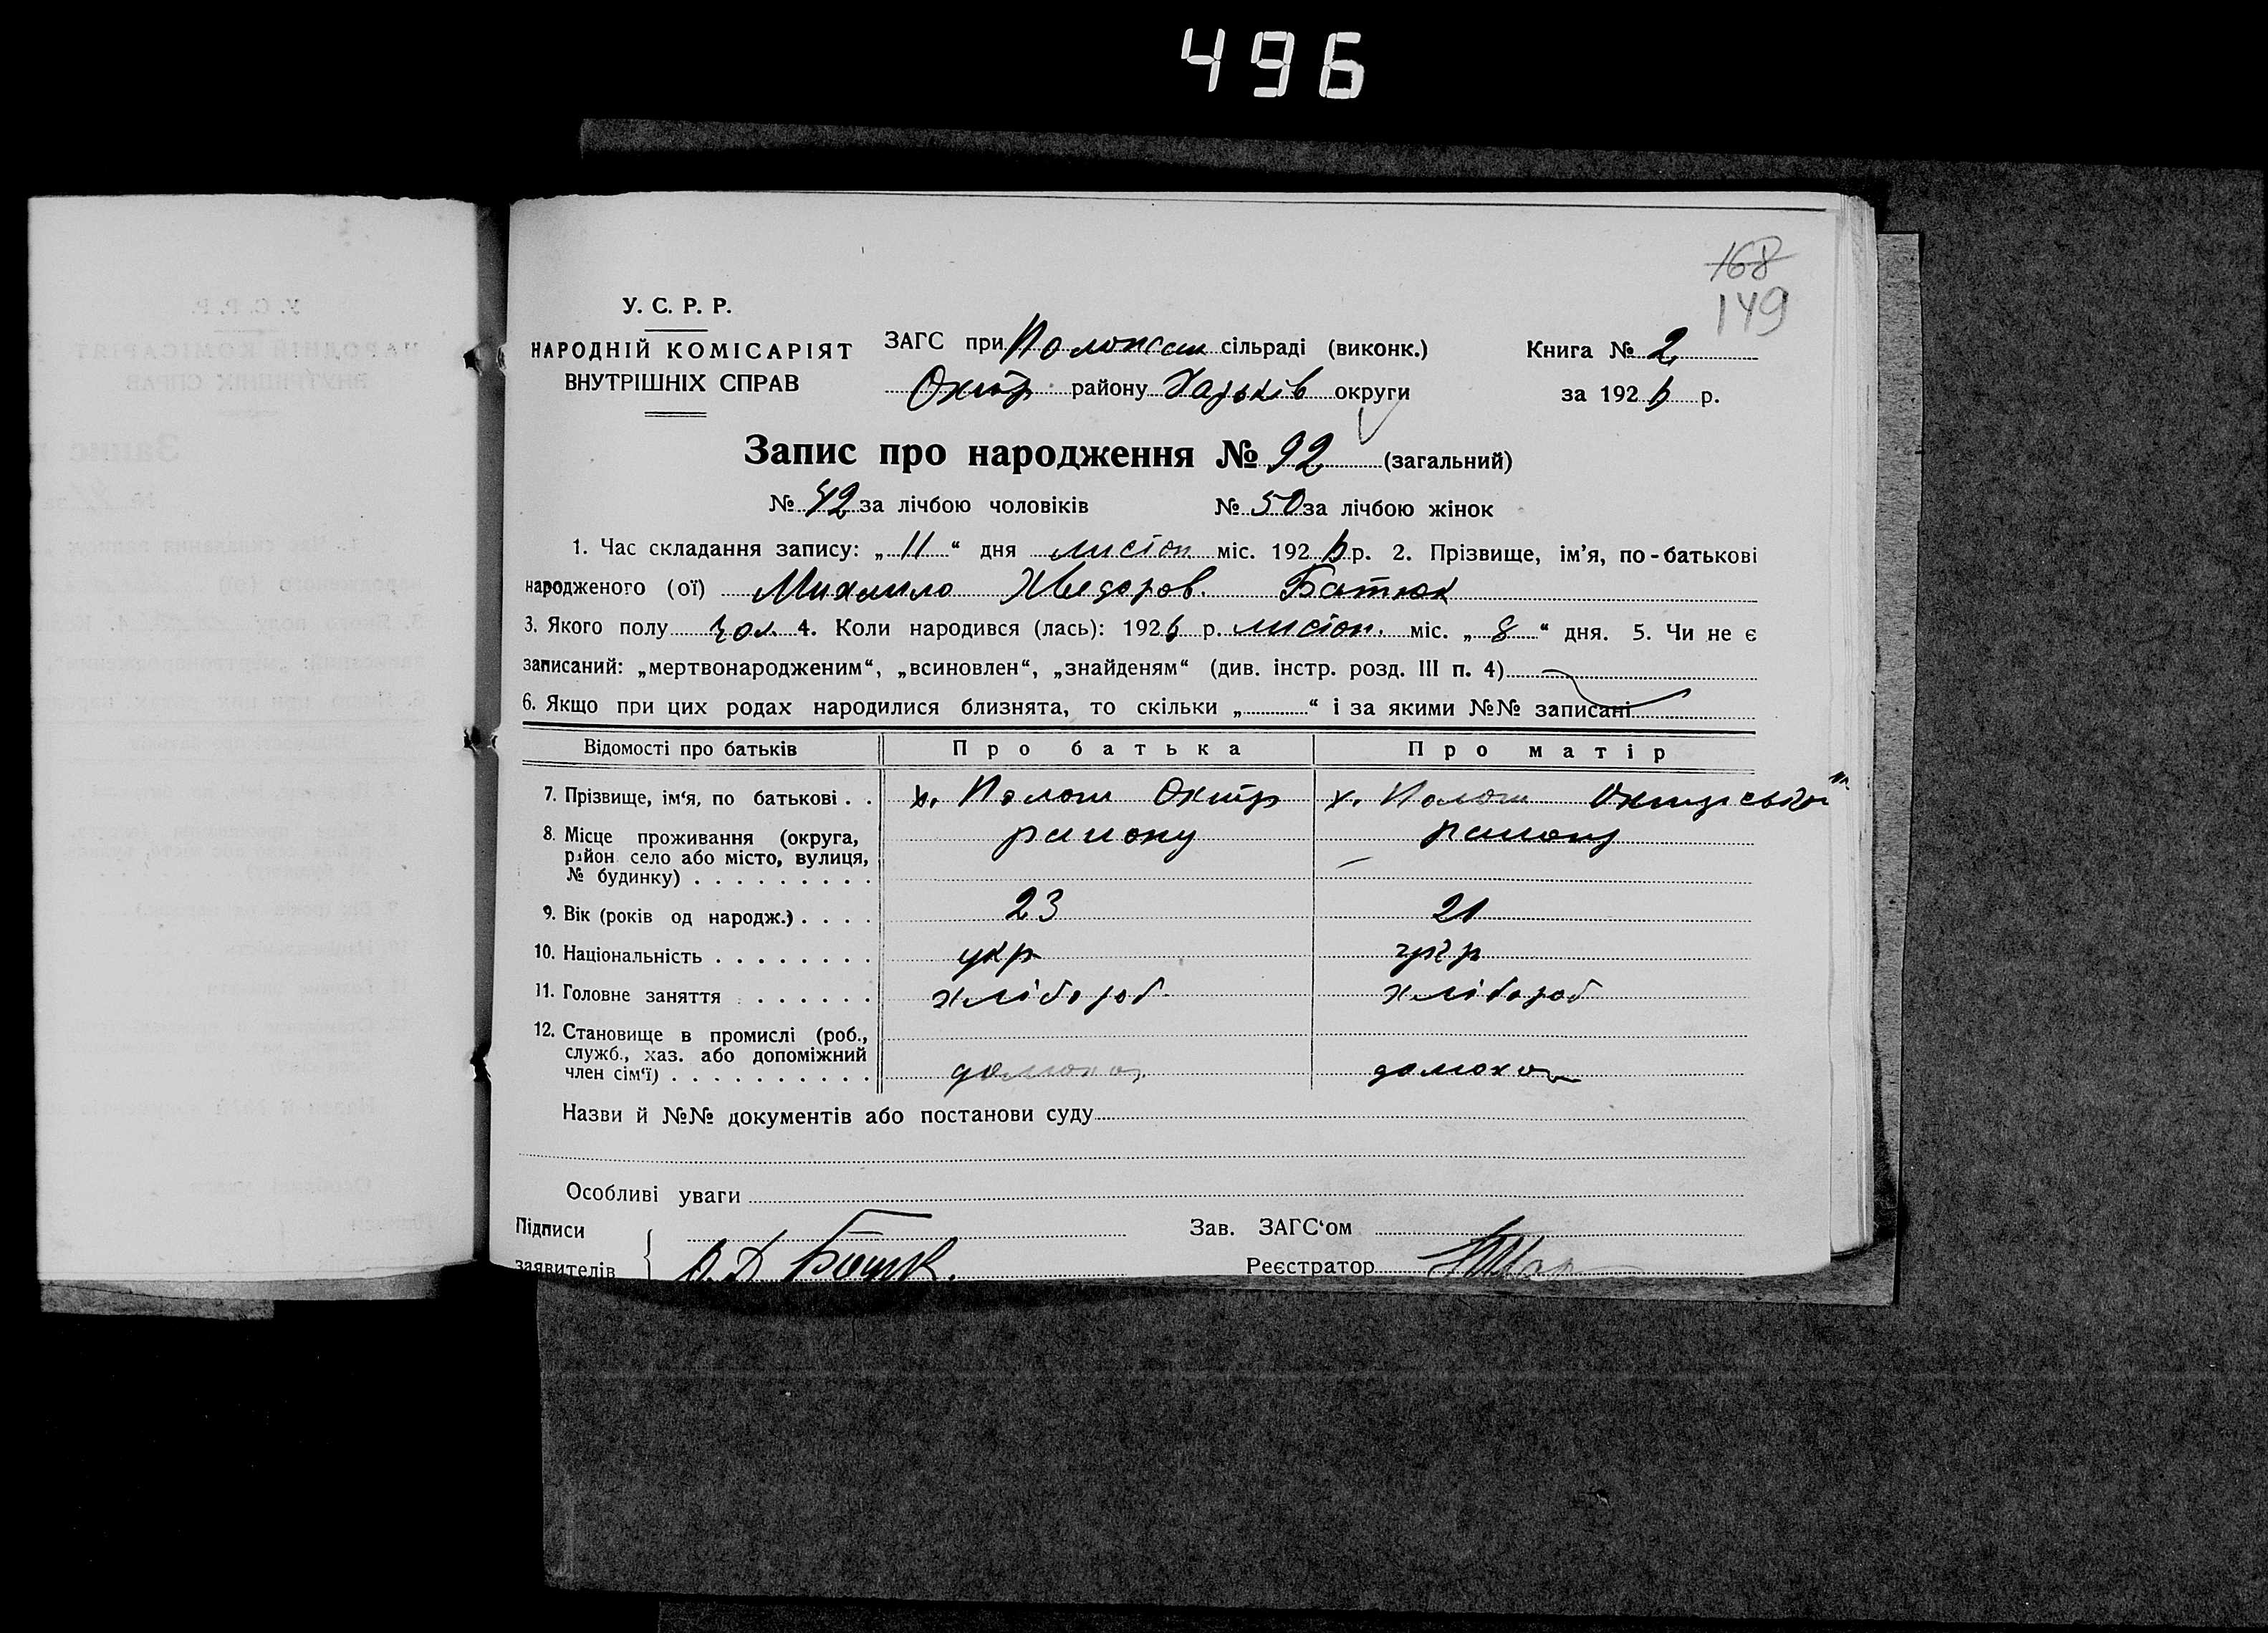 496
168
149
У. С. Р. Р.
НАРОДНІЙ КОМІСАРІЯТ
ВНУТРІШНІХ СПРАВ
ЗАГС при сільраді (виконк.)
Охтир району Харьків округи
Книга № 2
за 1926 р.
Запис про народження № 92 (загальний)
№ 42 за лічбою чоловіків № 50 за лічбою жінок
1. Час складання запису: „ 11 “ дня листоп міс. 1926 р. 2. Прізвище, ім’я, по-батькові
народженого (ої) Михайло Хведоров. Батюк
3. Якого полу чол. 4. Коли народився (лась): 1926 р. листоп. міс. „ 8 “ дня. 5. Чи не є
записаний: „мертвонародженим“, „всиновлен“, „знайденям“ (див. інстр. розд. III п. 4)
6. Якщо при цих родах народилися близнята, то скільки „ “ і за якими №№ записані
Відомості про батьків Про батька Про матір
7. Прізвище, ім‘я, по батькові . . х. Охтир х.
8. Місце проживання (округа, району району
район село або місто, вулиця,
№ будинку) . . . . . . . . .
9. Вік (років од народж.) . . . . 23 21
10. Національність . . . . . . . . укр укр
11. Головне заняття . . . . . . . хлібороб хлібороб
12. Становище в промислі (роб.,
служб., хаз. або допоміжний
член сім‘ї) . . . . . . . . . .
Назви й №№ документів або постанови суду
Особливі уваги
Підписи Зав. ЗАГС‘ом
заявителів Батюк. Реєстратор